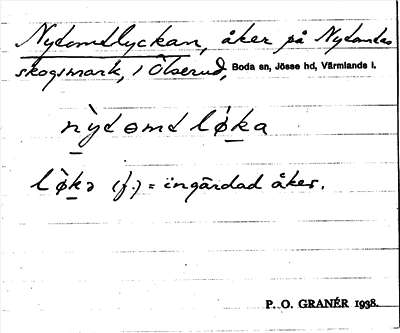 Nytomtlyckan, åker på Nytomtas
skogsmark, i Ölserud, Boda sn, Jösse hd, Värmlands l.
ǹyt omt lø̀ka
lø̀kə (f.) = ingärdad åker.
P. O. GRANÉR 1938.